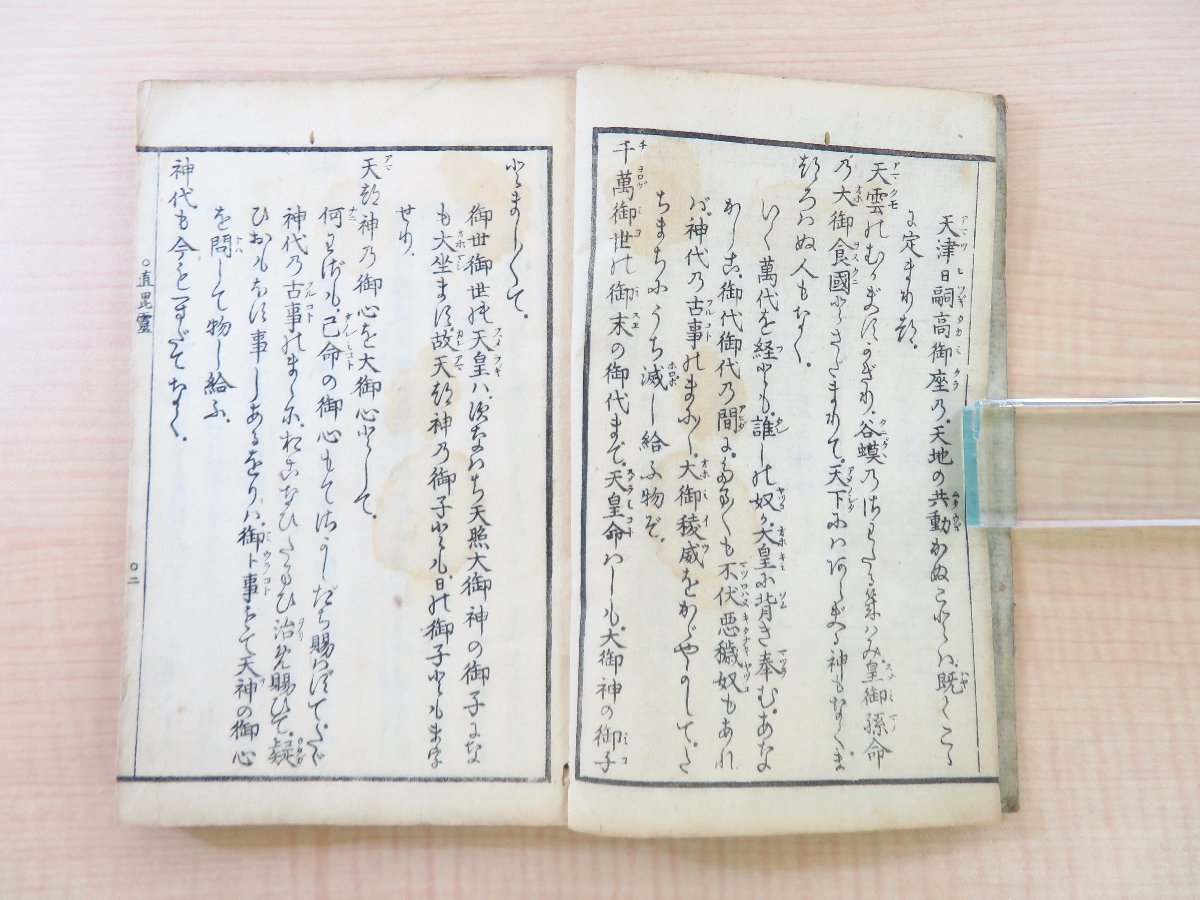 天津日嗣高御座の、天地の共動かぬことは、既くこゝ
に定まりつ、
天雲のむかぶすかぎり、谷蟆のさわたるきはみ、皇御孫命
の大御食國とさだまりて、天下にはあらぶる神もなく、ま
つろはぬ人もなく、
いく萬代を経とも、誰しの奴か、大皇に背き奉む。あな
かしこ、御代御代の間に、たま〱も不伏悪穢奴もあれ
ば、神代の古事のまに〱、大御稜威をかゞやかして、た
ちまちにうち滅し給ふ物ぞ。
千萬御世の御末の御代まで、天皇命はしも、大御神の御子
とまし〱て、
御世御世の天皇は、すなはち天照大御神の御子にな
も大坐ます、故天つ神の御子とも、日の御子ともまを
せり、
天つ神の御心を大御心として、
何わざも、己命の御心もてさかしだち賜はずて、たゞ
神代の古事のまゝに、おこなひたまひ治め賜ひて、疑
ひおもほす事しあるをりは、御卜事もて、天神の御心
を問して物し給ふ、
神代も今もへだてなく、
○直毘靈
○二